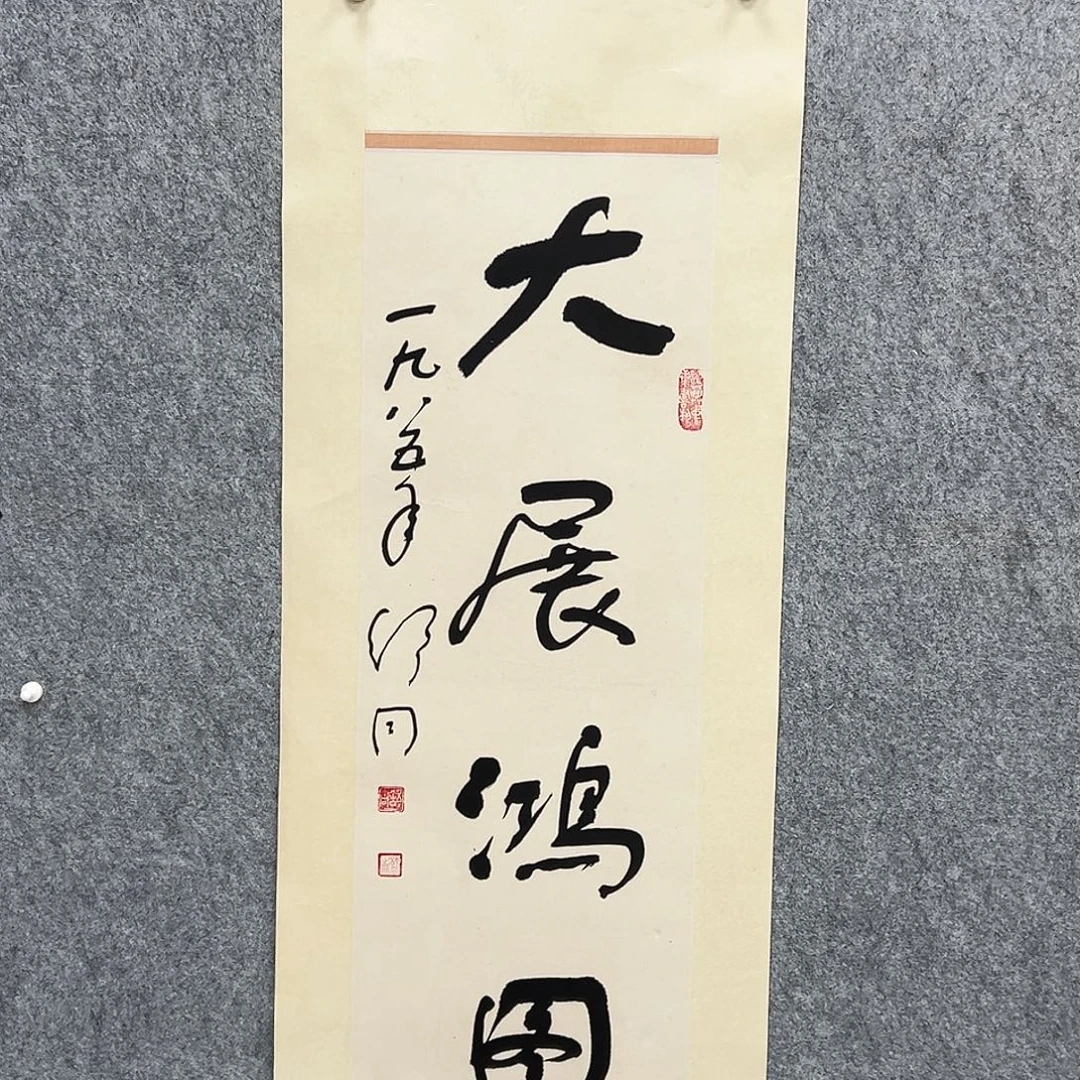 大展鸿图
一九八五年 舒同